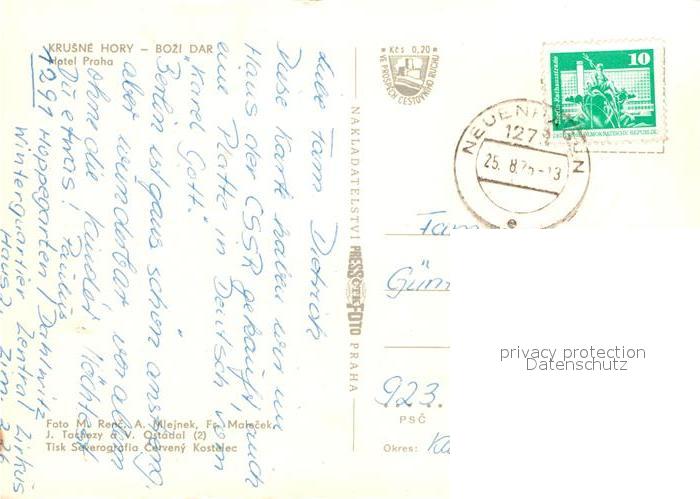 KRUŠNÉ HORY – BOŽÍ DAR
Hotel Praha
* Kčs 0,20 *
VE PROSPĚCH CESTOVNÍHO RUCHU
10
Berlin-Rathausstraße
DEMOKRATISCHE REPUBLIK
NEUENHAGEN
127
25. 8.
e
Liebe Fam. Dietrich
Diese Karte haben wir im
Haus der CSSR gekauft, auch
eine Platte in Deutsch von
"Karel Gott".
Berlin ist ganz schön anstreng.
aber wunderbar vor allem
ohne die Kinder. Möchtest
Du etwas! Paulis
1291 Hoppegarten/Dahlwitz
Winterquartier Zentral Zirkus
Haus 2, Zim.
NAKLADATELSTVÍ PRESSFOTO PRAHA
ČTK
Fam
Gün
923.
PSČ
Okres: Ka
privacy protection
Datenschutz
Foto M. Renč, A. Mlejnek, Fr. Maleček,
J. Tachezy a V. Ostádal (2)
Tisk Severografia Červený Kostelec